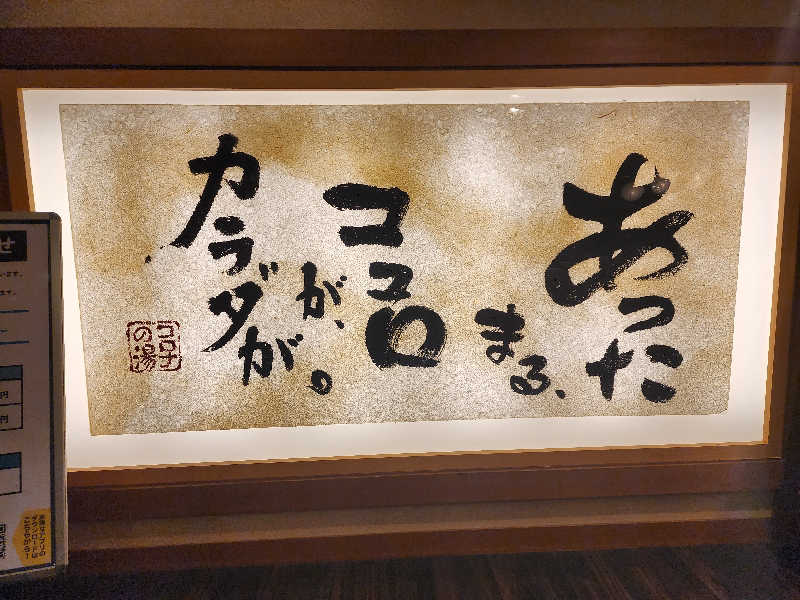 あった
まる、
ココロ
が、
カラダ
が。
コロナ
の湯
せ
円
円